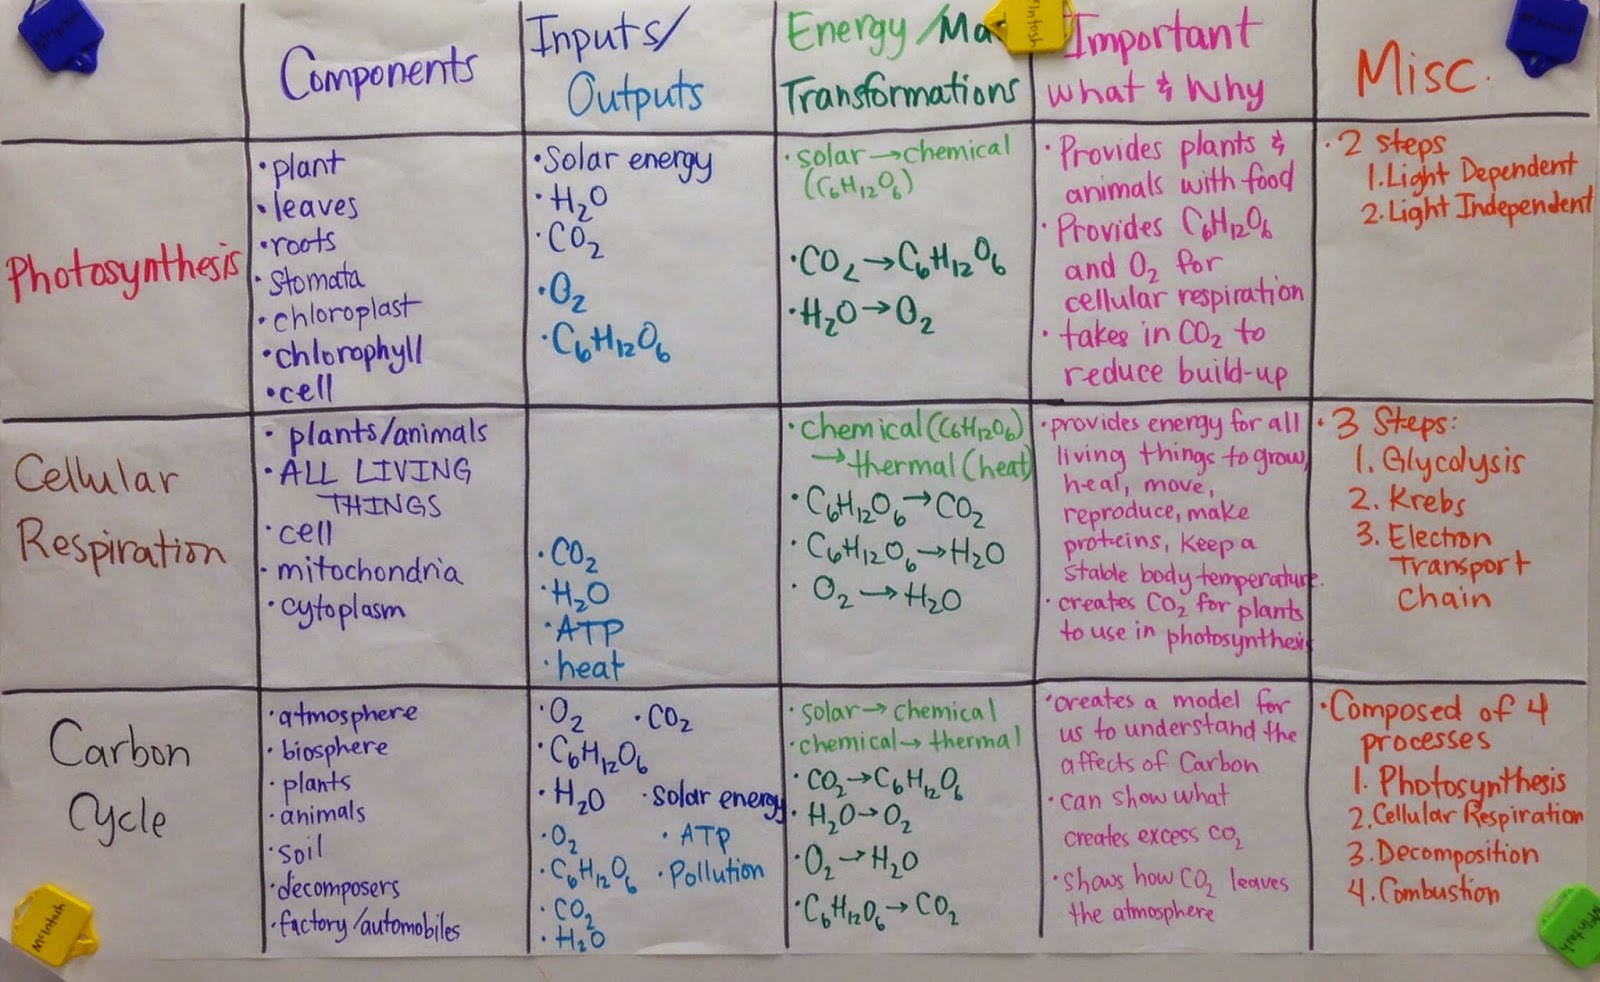 Components
Inputs/
Outputs
Energy/Ma
Transformations
Important
What & Why
Misc.
McIntosh
McIntosh
McIntosh
Photosynthesis
• plant
• leaves
• roots
• stomata
• chloroplast
• chlorophyll
• cell
• Solar energy
• H₂O
• CO₂
• O₂
• C₆H₁₂O₆
• solar → chemical
(C₆H₁₂O₆)
• CO₂ → C₆H₁₂O₆
• H₂O → O₂
• Provides plants &
animals with food
• Provides C₆H₁₂O₆
and O₂ for
cellular respiration
• takes in CO₂ to
reduce build-up
• 2 steps
1. Light Dependent
2. Light Independent
Cellular
Respiration
• plants/animals
• ALL LIVING
THINGS
• cell
• mitochondria
• cytoplasm
• CO₂
• H₂O
• ATP
• heat
• chemical (C₆H₁₂O₆)
→ thermal (heat)
• C₆H₁₂O₆ → CO₂
• C₆H₁₂O₆ → H₂O
• O₂ → H₂O
• provides energy for all
living things to grow,
heal, move,
reproduce, make
proteins, keep a
stable body temperature.
• creates CO₂ for plants
to use in photosynthesis
• 3 Steps:
1. Glycolysis
2. Krebs
3. Electron
Transport
Chain
Carbon
Cycle
• atmosphere
• biosphere
• plants
• animals
• soil
• decomposers
• factory/automobiles
• O₂ • CO₂
• C₆H₁₂O₆
• H₂O • Solar energy
• O₂ • ATP
• C₆H₁₂O₆ • Pollution
• CO₂
• H₂O
• solar → chemical
• chemical → thermal
• CO₂ → C₆H₁₂O₆
• H₂O → O₂
• O₂ → H₂O
• C₆H₁₂O₆ → CO₂
• creates a model for
us to understand the
affects of Carbon
• can show what
creates excess CO₂
• shows how CO₂ leaves
the atmosphere
• Composed of 4
processes
1. Photosynthesis
2. Cellular Respiration
3. Decomposition
4. Combustion
McIntosh
McIntosh